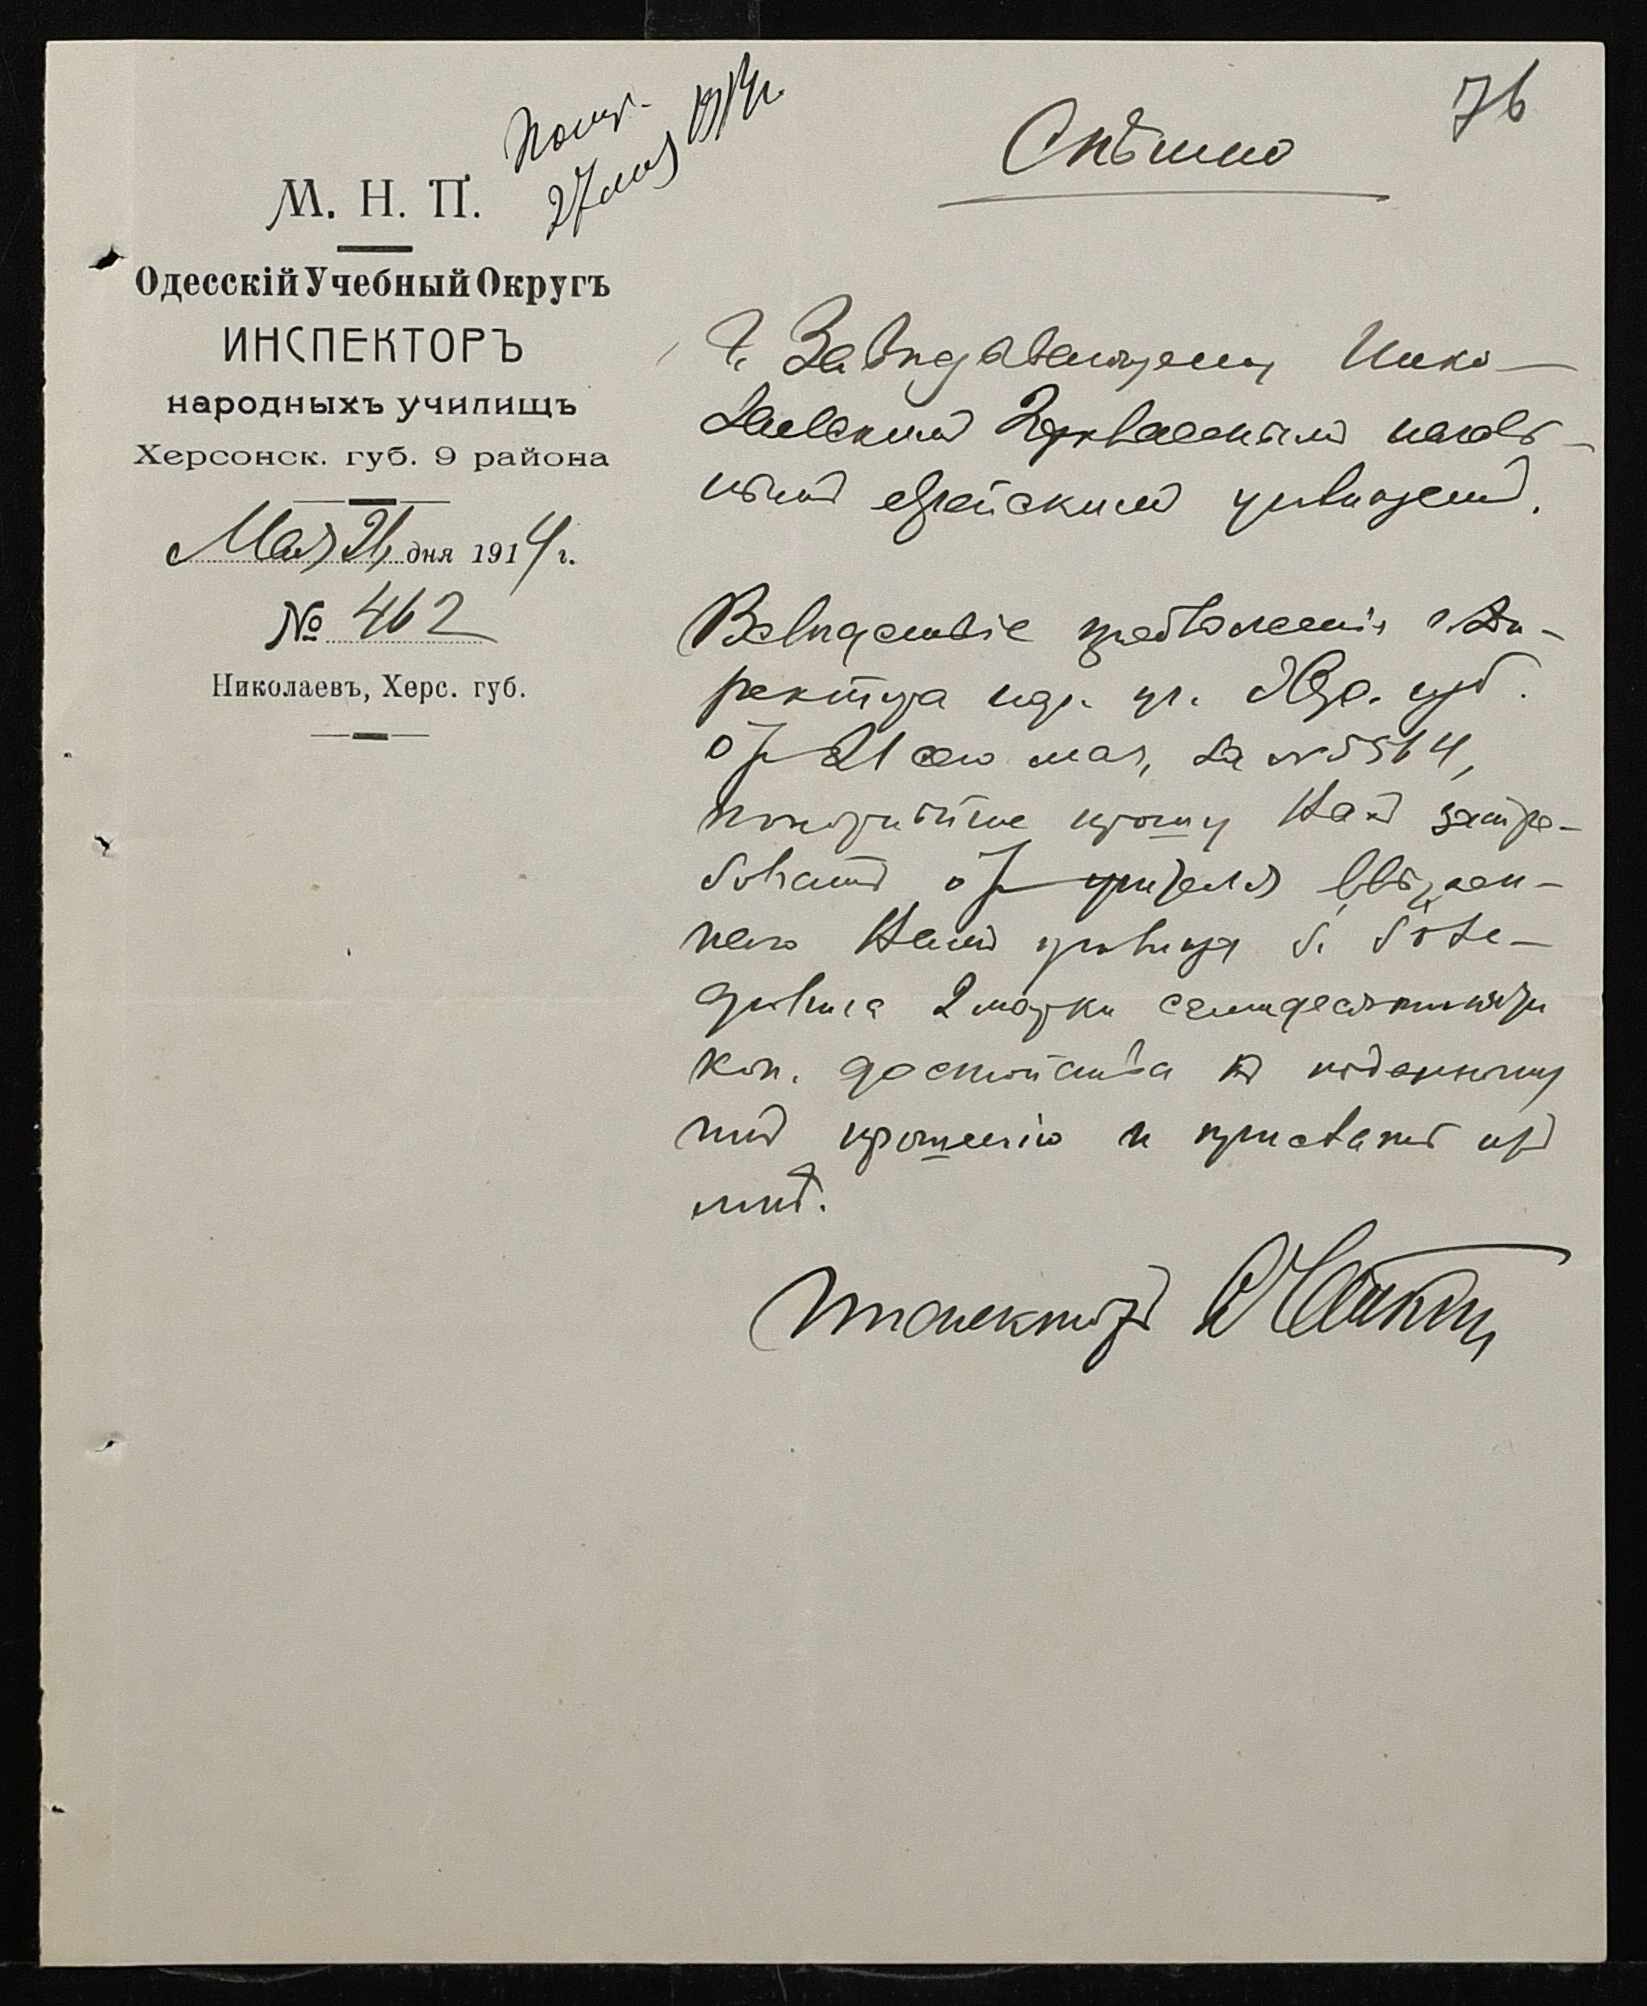 76
Спѣшно
Получ.
27 мая 1914 г.
М. Н. П.
Одесскій Учебный Округъ
ИНСПЕКТОРЪ
народныхъ училищъ
Херсонск. губ. 9 района
Мая 26 дня 1914 г.
№ 462
Николаевъ, Херс. губ.
Г. Завѣдывающему Нико-
лаевскимъ 2хкласснымъ началь-
нымъ еврейскимъ училищемъ.
Вслѣдствіе предложенія г. Ди-
ректора нар. уч. Херс. губ.
отъ 21 сего мая, за № 5564,
покорнѣйше прошу Васъ затре-
бовать отъ учителя ввѣрен-
наго Вамъ училища
2 марки семидесятипяти
коп. достоинства къ поданному
имъ прошенію и прислать ихъ
мнѣ.
Инспекторъ